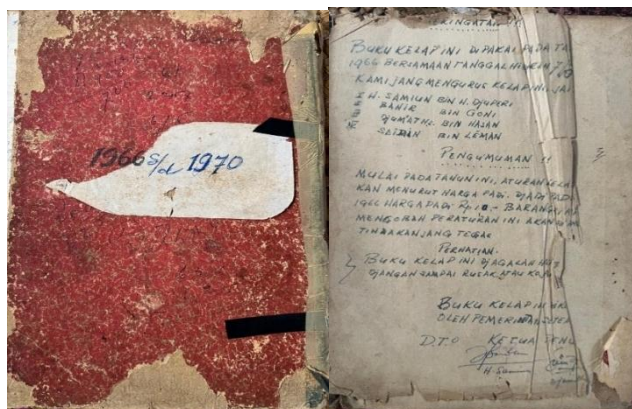 1966 s/d 1970
PERINGATAN !!
BUKU KELAP INI DIPAKAI PADA TA
1966 BERSAMAAN TANGGAL
KAMI JANG MENGURUS KELAP INI JAI
H. SAMIUN BIN H. DJUPERI
BAHIR BIN GONI
DJUMATHL. BIN HASAN
SAIBAN BIN LEMAN
PENGUMUMAN !!
MULAI PADA TAHUN INI, ATURAN
KAN MENURUT HARGA PADI. DJADI PADI
1966 HARGA PADI Rp. BARANG
MENGOBAH PERATURAN INI AKAN
TINDAKAN JANG TEGAS
PERHATIAN.
BUKU KELAP INI DJAGALAH
DJANGAN SAMPAI RUSAK ATAU
BUKU KELAP INI
OLEH PEMERINTAH
D.T.O KETUA
H. Sam